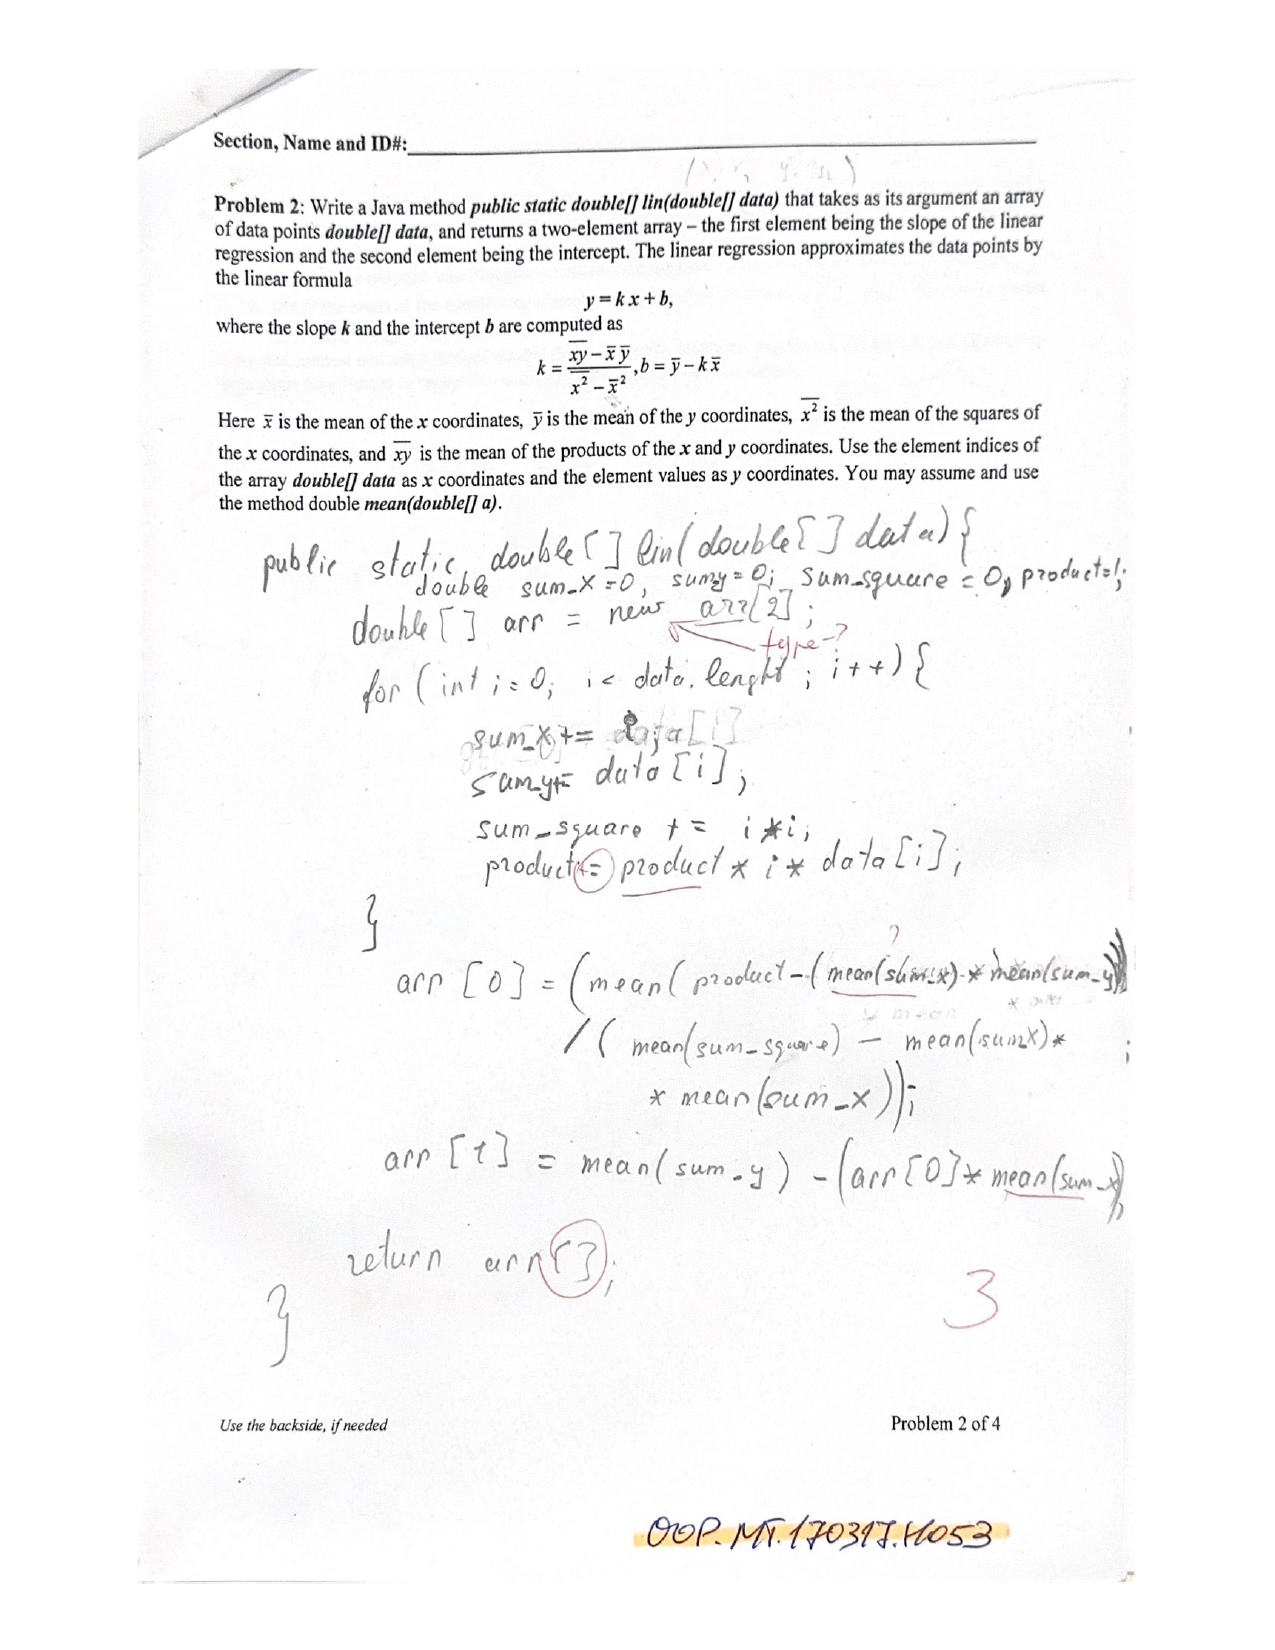 Section, Name and ID#:
Problem 2: Write a Java method public static double[] lin(double[] data) that takes as its argument an array
of data points double[] data, and returns a two-element array – the first element being the slope of the linear
regression and the second element being the intercept. The linear regression approximates the data points by
the linear formula
y = k x + b,
where the slope k and the intercept b are computed as
k = (x̅y̅ – x̅ y̅) / (x̅²̅ – x̅²), b = y̅ – k x̅
Here x̅ is the mean of the x coordinates, y̅ is the mean of the y coordinates, x̅²̅ is the mean of the squares of
the x coordinates, and x̅y̅ is the mean of the products of the x and y coordinates. Use the element indices of
the array double[] data as x coordinates and the element values as y coordinates. You may assume and use
the method double mean(double[] a).
public static double[] lin(double[] data) {
double sum_x = 0, sumy = 0; sum_square = 0, product=1;
double [] arr = new arr[2];
type-?
for (int i = 0; i < data.lenght; i++) {
sum_x += i
sum_y+= data[i];
sum_square += i*i;
product += product * i * data[i];
}
?
arr [0] = (mean( product - (mean(sum_x) * mean(sum_y)))
/ ( mean(sum_square) - mean(sumx) * ;
* mean(sum_x));
arr [1] = mean(sum_y) - (arr[0]* mean(sum_x));
return arr[];
}
3
Use the backside, if needed
Problem 2 of 4
OOP.MT.170317.H053